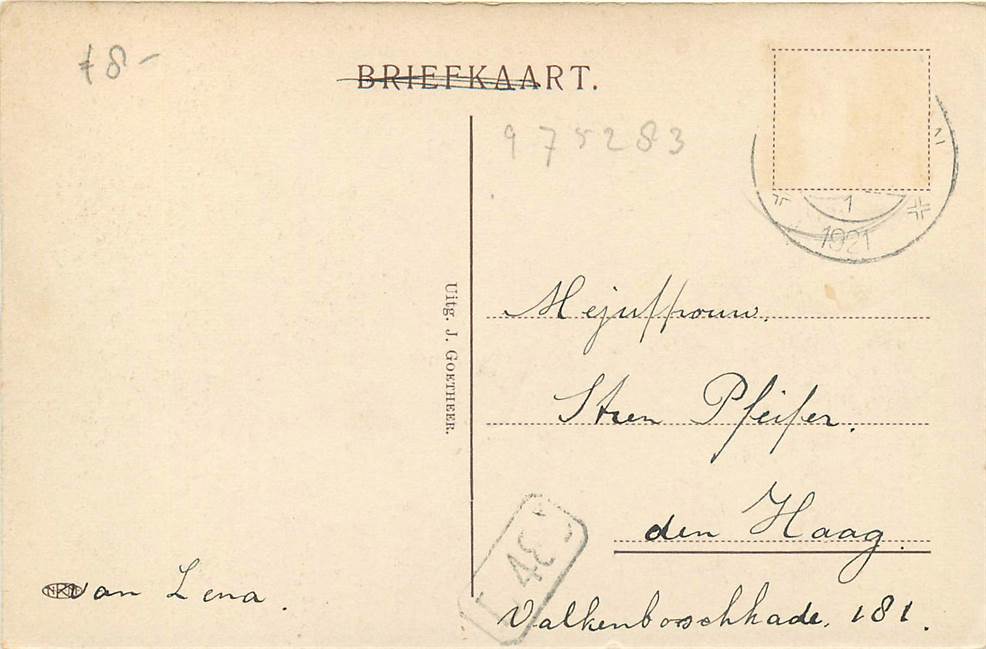 8-
BRIEFKAART.
975283
1
1921
Uitg. J. GOETHEER.
Mejuffrouw.
Pfeifer.
den Haag.
Valkenboschkade. 181.
van Lena.